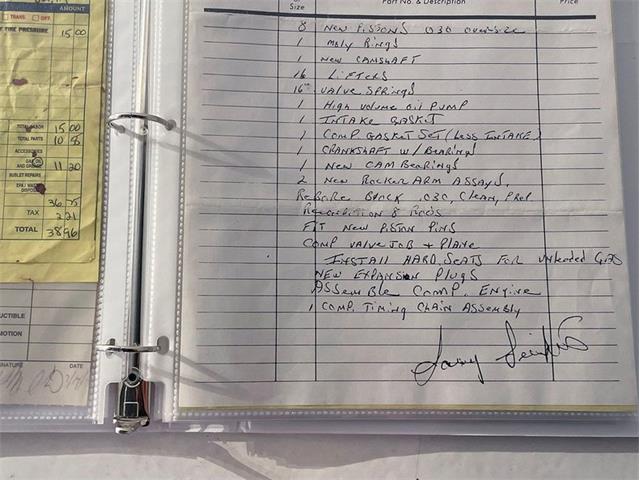 AMOUNT
TRANS. OFF.
TIRE PRESSURE 15 00
TOTAL LABOR 15 00
TOTAL PARTS 10 8
ACCESSORIES
GAS, OIL AND GREASE 11 20
SUBLET REPAIRS
EPA/WASTE DISPOSAL
36 75
TAX 2 21
TOTAL 38 96
UCTIBLE
MOTION
GNATURE DATE
or Size Part No. & Description Price
8 New Pistons 030 oversize
1 Moly Rings
1 New Camshaft
16 Lifters
16 Valve Springs
1 High Volume oil Pump
1 Intake Gasket
1 Comp Gasket Set (Less Intake)
1 Crankshaft w/ Bearings
1 New Cam Bearings
2 New Rocker Arm Assays,
Rebore Block .030, Clean, Prep
Recondition 8 Rods
Fit New Piston Pins
Comp Valve Job + Plane
Install Hard Seats For unleaded Gas
New Expansion Plugs
Assemble Comp. Engine
1 Comp. Timing Chain Assembly